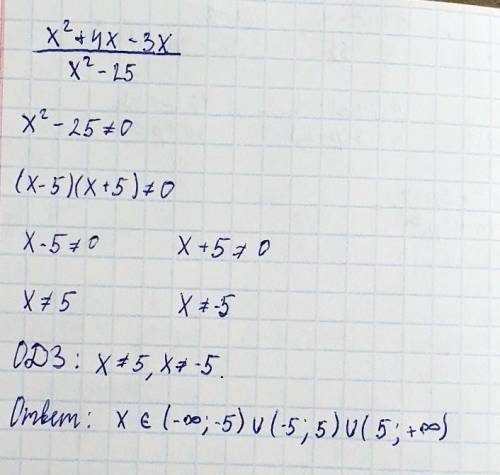 x² + 4x - 3x
x² - 25
x² - 25 ≠ 0
(x-5)(x+5) ≠ 0
x - 5 ≠ 0 x + 5 ≠ 0
x ≠ 5 x ≠ -5
ОДЗ: x ≠ 5, x ≠ -5.
Ответ: x ∈ (-∞; -5) ∪ (-5; 5) ∪ (5; +∞)